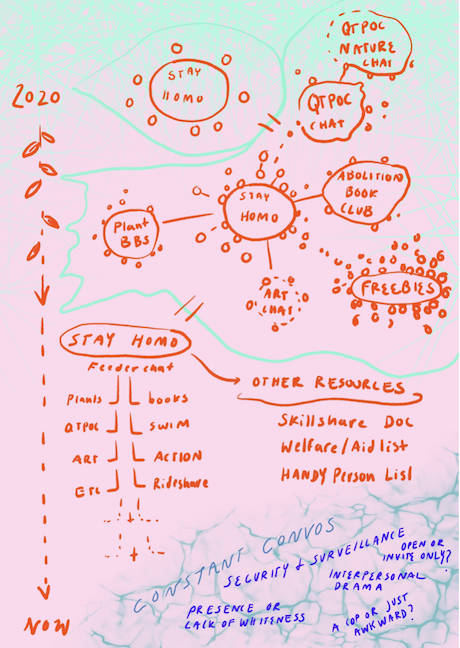 2020
STAY
HOMO
QTPOC
NATURE
CHAT
QTPOC
CHAT
STAY
HOMO
ABOLITION
BOOK
CLUB
Plant
BBS
ART
CHAT
FREEBIES
STAY HOMO
Feeder chat
Plants
books
QTPOC
SWIM
ART
ACTION
ETC
Rideshare
OTHER RESOURCES
Skillshare Doc
Welfare/Aid list
HANDY Person List
CONSTANT CONVOS
SECURITY & SURVEILLANCE
OPEN OR
INVITE ONLY?
INTERPERSONAL
DRAMA
PRESENCE OR
LACK OF WHITENESS
A COP OR JUST
AWKWARD?
NOW